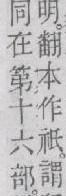 明。翻本作祇。謂
同在第十六部。